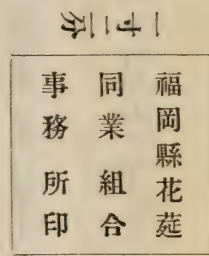 一寸二分
福岡縣花莚
同業組合
事務所印